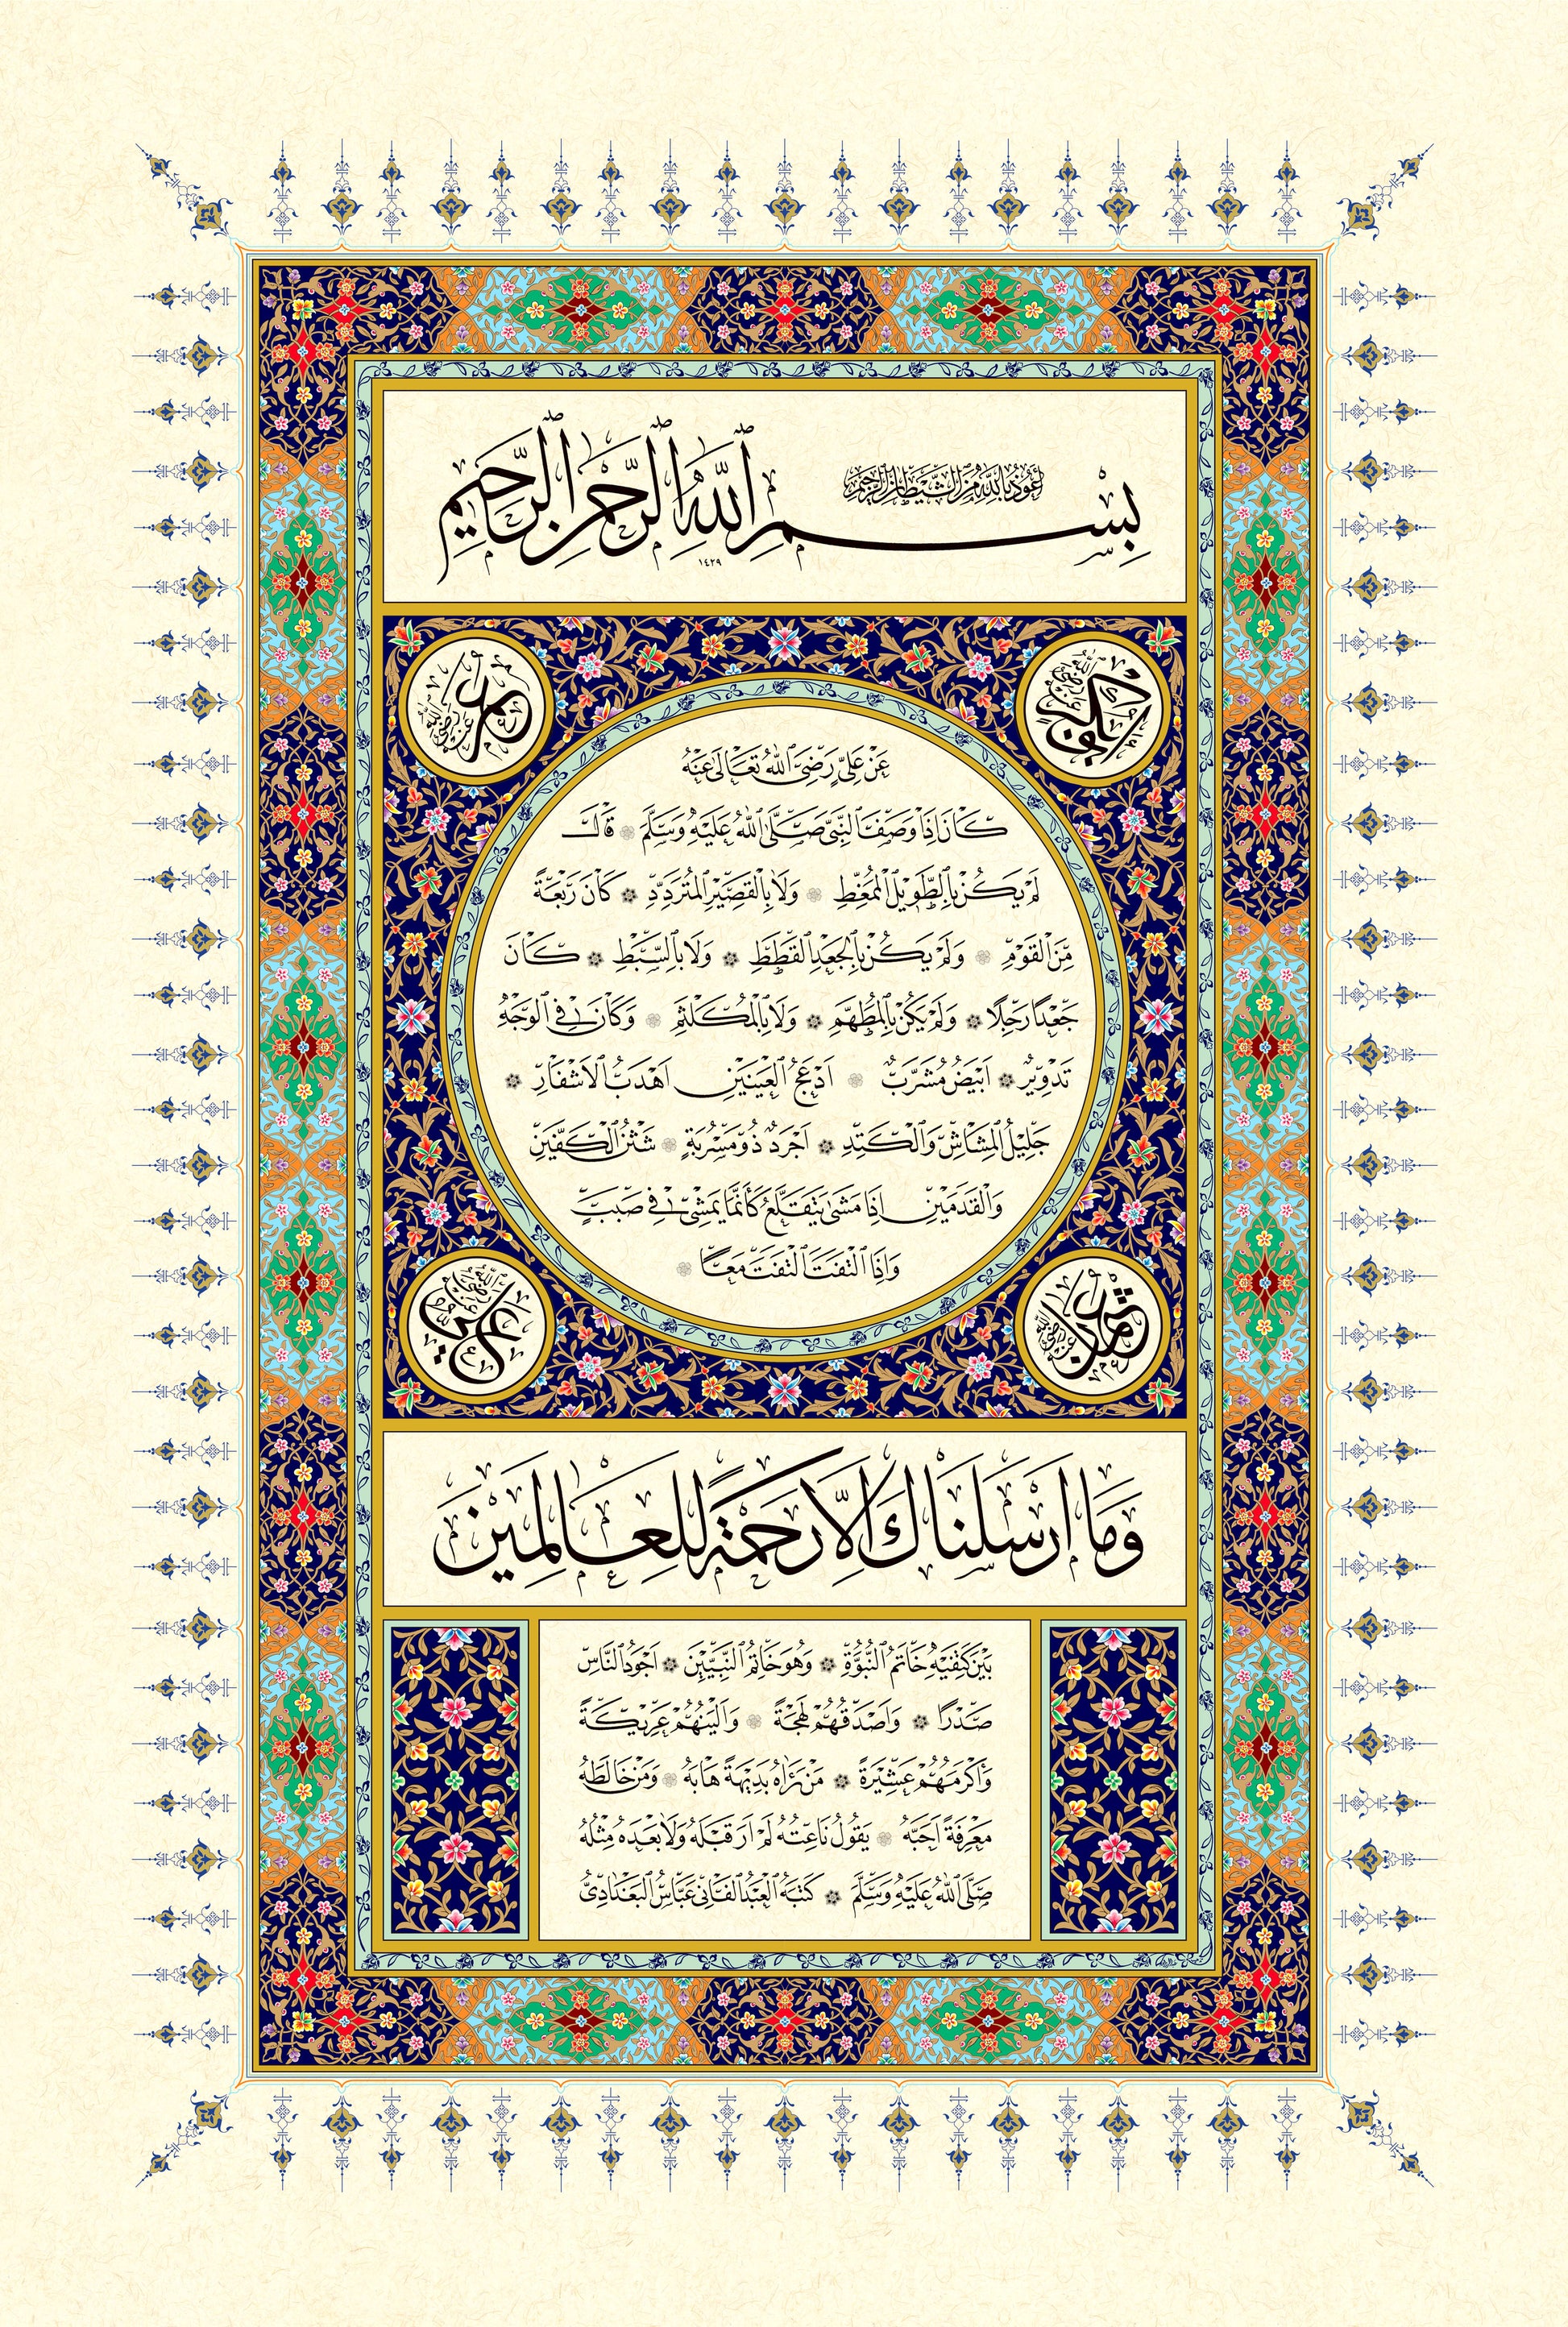 أعوذ بالله من الشيطان الرجيم
بِسْمِ ٱللَّهِ ٱلرَّحْمٰنِ ٱلرَّحِيمِ
١٤٢٩
أبو بكر رضي الله عنه
عمر رضي الله عنه
عَنْ عَلِيٍّ رَضِيَ اللهُ تَعَالَى عَنْهُ
كَانَ إِذَا وَصَفَ النَّبِيَّ صَلَّى اللهُ عَلَيْهِ وَسَلَّمَ قَالَ
لَمْ يَكُنْ بِالطَّوِيلِ الْمُمَغَّطِ وَلَا بِالْقَصِيرِ الْمُتَرَدِّدِ كَانَ رَبْعَةً
مِنَ الْقَوْمِ وَلَمْ يَكُنْ بِالْجَعْدِ الْقَطَطِ وَلَا بِالسَّبْطِ كَانَ
جَعْدًا رَجِلًا وَلَمْ يَكُنْ بِالْمُطَهَّمِ وَلَا بِالْمُكَلْثَمِ وَكَانَ فِي الْوَجْهِ
تَدْوِيرٌ أَبْيَضُ مُشْرَبٌ أَدْعَجُ الْعَيْنَيْنِ أَهْدَبُ الْأَشْفَارِ
جَلِيلُ الْمُشَاشِ وَالْكَتَدِ أَجْرَدُ ذُو مَسْرُبَةٍ شَثْنُ الْكَفَّيْنِ
وَالْقَدَمَيْنِ إِذَا مَشَى يَتَقَلَّعُ كَأَنَّمَا يَمْشِي فِي صَبَبٍ
وَإِذَا الْتَفَتَ الْتَفَتَ مَعًا
عثمان رضي الله عنه
علي رضي الله عنه
وَمَا أَرْسَلْنَاكَ إِلَّا رَحْمَةً لِلْعَالَمِينَ
بَيْنَ كَتِفَيْهِ خَاتَمُ النُّبُوَّةِ وَهُوَ خَاتَمُ النَّبِيِّينَ أَجْوَدُ النَّاسِ
صَدْرًا وَأَصْدَقُهُمْ لَهْجَةً وَأَلْيَنُهُمْ عَرِيكَةً
وَأَكْرَمُهُمْ عَشِيرَةً مَنْ رَآهُ بَدِيهَةً هَابَهُ وَمَنْ خَالَطَهُ
مَعْرِفَةً أَحَبَّهُ يَقُولُ نَاعِتُهُ لَمْ أَرَ قَبْلَهُ وَلَا بَعْدَهُ مِثْلَهُ
صَلَّى اللهُ عَلَيْهِ وَسَلَّمَ كَتَبَهُ الْعَبْدُ الْفَانِي عَبَّاسٌ الْبَغْدَادِيُّ